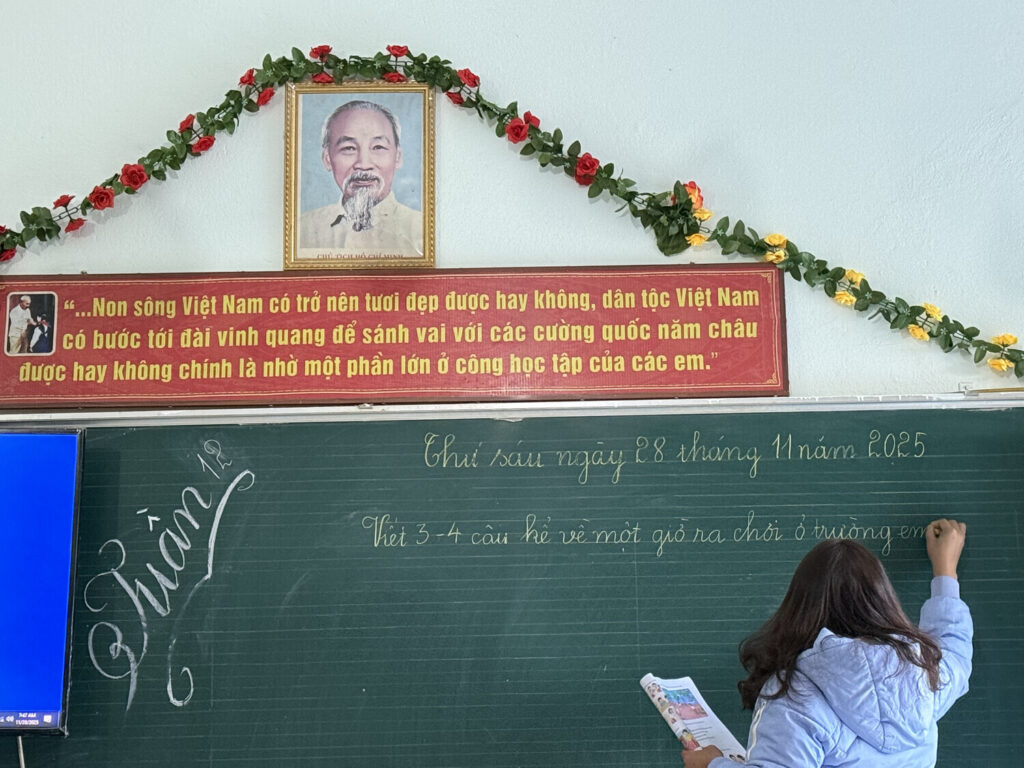 CHỦ TỊCH HỒ CHÍ MINH
“...Non sông Việt Nam có trở nên tươi đẹp được hay không, dân tộc Việt Nam
có bước tới đài vinh quang để sánh vai với các cường quốc năm châu
được hay không chính là nhờ một phần lớn ở công học tập của các em.”
Thứ sáu ngày 28 tháng 11 năm 2025
Tuần 12
Viết 3-4 câu kể về một giờ ra chơi ở trường em
7:47 AM
11/28/2025